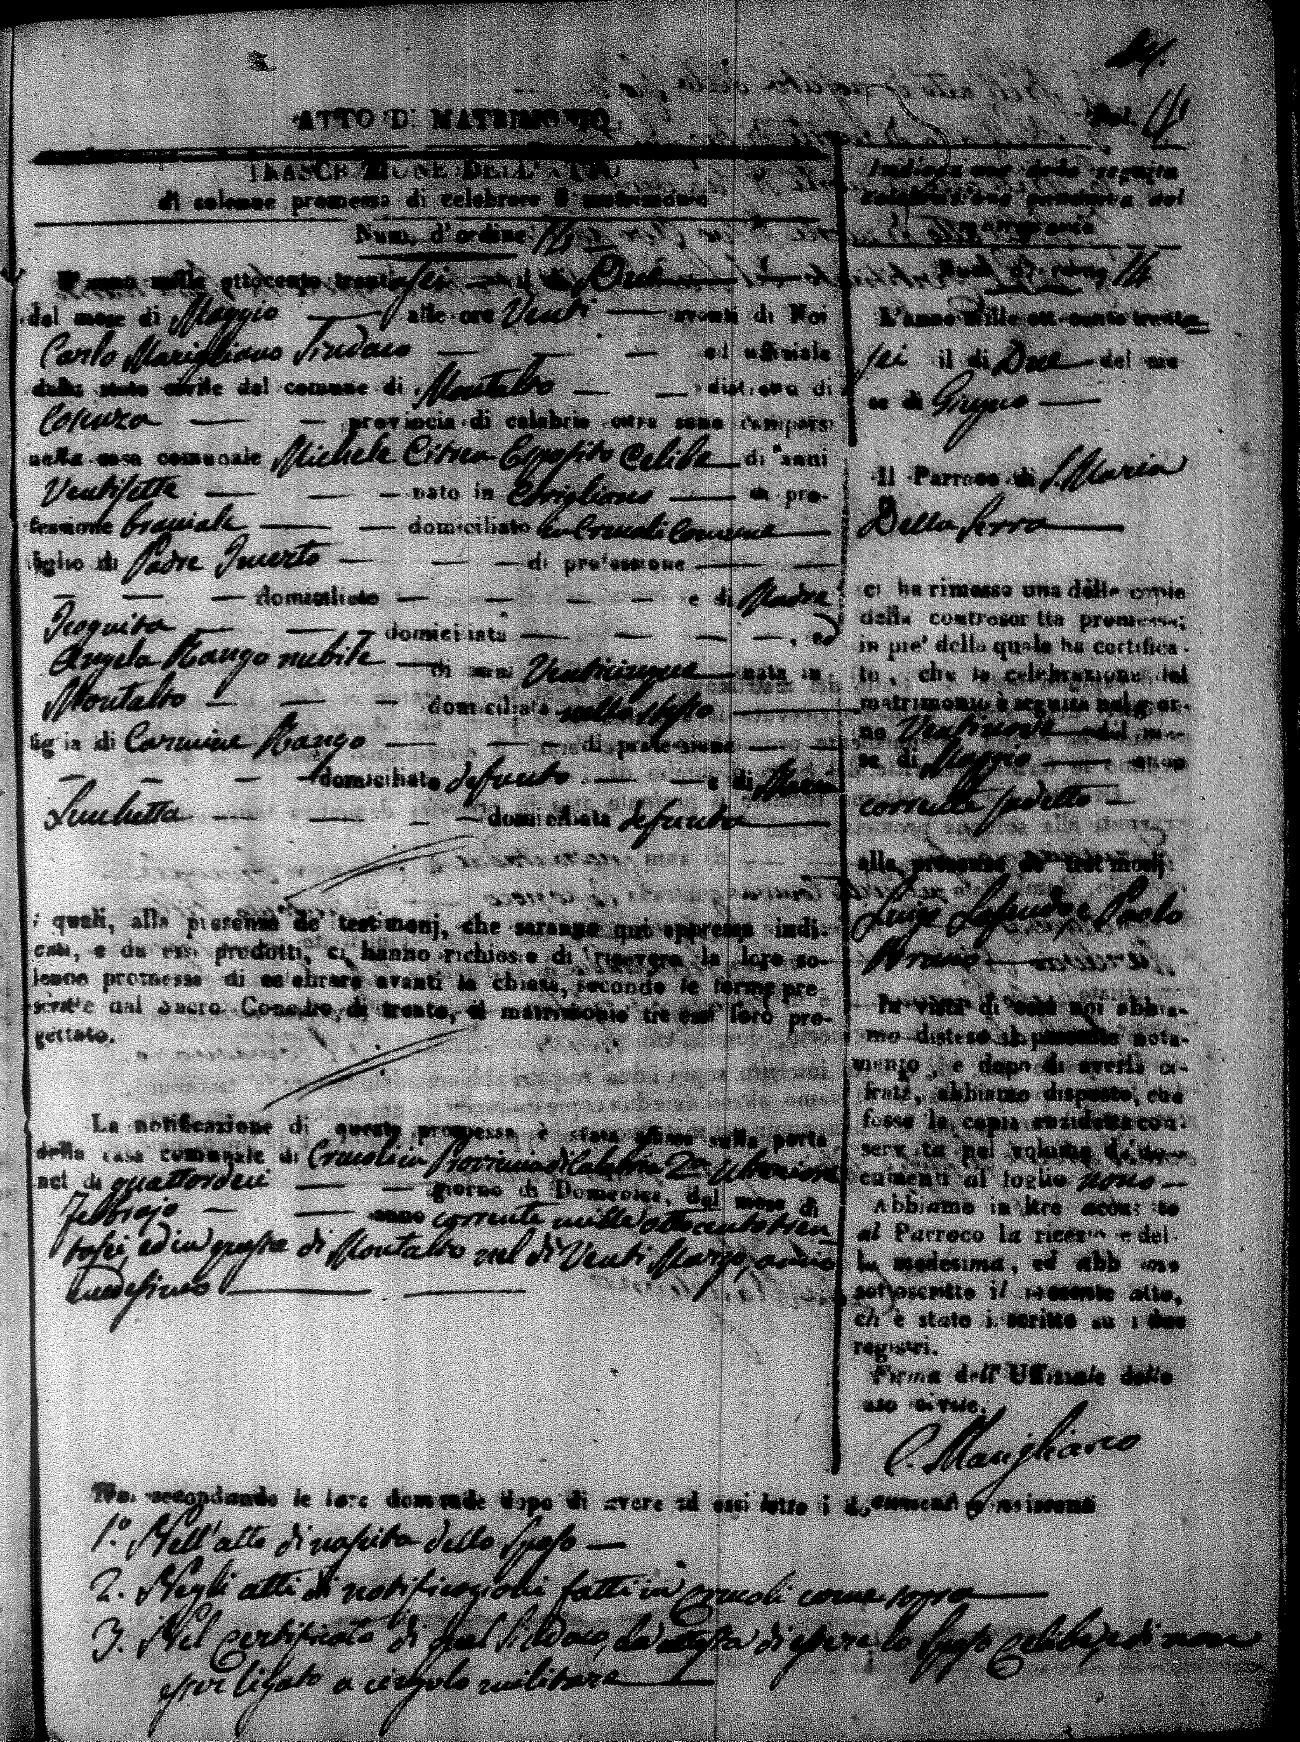 ATTO DI MATRIMONIO
TRASCRIZIONE DELL'ATTO
di solenne promessa di celebrare il matrimonio
Num. d'ordine
L'anno mille ottocento trentasei il di
del mese di Maggio alle ore Venti avanti di Noi
Carlo Marigliano Sindaco ed uffiziale
dello stato civile del comune di Montalto distretto di
Cosenza provincia di calabria citra sono comparsi
nella casa comunale Michele Citrea Esposito Celibe di anni
Ventisette nato in di pro-
fessione braciale domiciliato in Comune
figlio di Padre Incerto di professione
domiciliato e di Madre
Incognita domiciliata , e
Angela Rango nubile di anni Venticinque nata in
Montalto domiciliata nello stesso
figlia di Carmine Rango di professione
domiciliato defunto e di Maria
domiciliata defunta
i quali, alla presenza de' testimonj, che saranno qui appresso indi-
cati, e da essi prodotti, ci hanno richiesto di ricevere la loro so-
lenne promessa di celebrare avanti la chiesa, secondo le forme pre-
scritte dal sacro Concilio di trento, il matrimonio tra essi loro pro-
gettato.
La notificazione di questa promessa è stata affissa sulla porta
della casa comunale di in Provincia di Calabria 2a Ulteriore
nel di quattordeci giorno di Domenica, del mese di
Febbrajo anno corrente mille ottocento tren
tasei, ed in questa di Montalto nel dì Venti Marzo, anno
medesimo
Indicazione della seguita
celebrazione canonica del
matrimonio
Num. d'ordine
L'anno mille ottocento trenta
sei il di Due del me-
se di Giugno
Il Parroco di S. Maria
Della Serra
ci ha rimesso una delle copie
della controscritta promessa;
in piè della quale ha certifica-
to, che la celebrazione del
matrimonio è seguita nel gior-
no Ventinove del me-
se di Maggio anno
corrente sudetto
alla presenza de' testimonj
Luigi e Paolo
Bruno
In vista di essa noi abbia-
mo disteso il presente nota-
mento, e dopo di averla ci-
frata, abbiamo disposto, che
fosse la copia anzidetta con-
servata nel volume de' do-
cumenti al foglio nono
Abbiamo inoltre accusato
al Parroco la ricezione del-
la medesima, ed abbiamo
sottoscritto il presente atto,
ch'è stato iscritto su i due
registri.
Firma dell'Uffiziale dello
stato civile.
C. Marigliano
Noi secondando le loro domande dopo di avere ad essi letto i documenti consistenti
1.° Nell'atto di nascita dello Sposo
2. Negli atti di notificazioni fatti in come sopra
3. Nel Certificato di quel Sindaco, che attesta di essere lo Sposo Celibe, e di non
esser ligato a cingolo militare